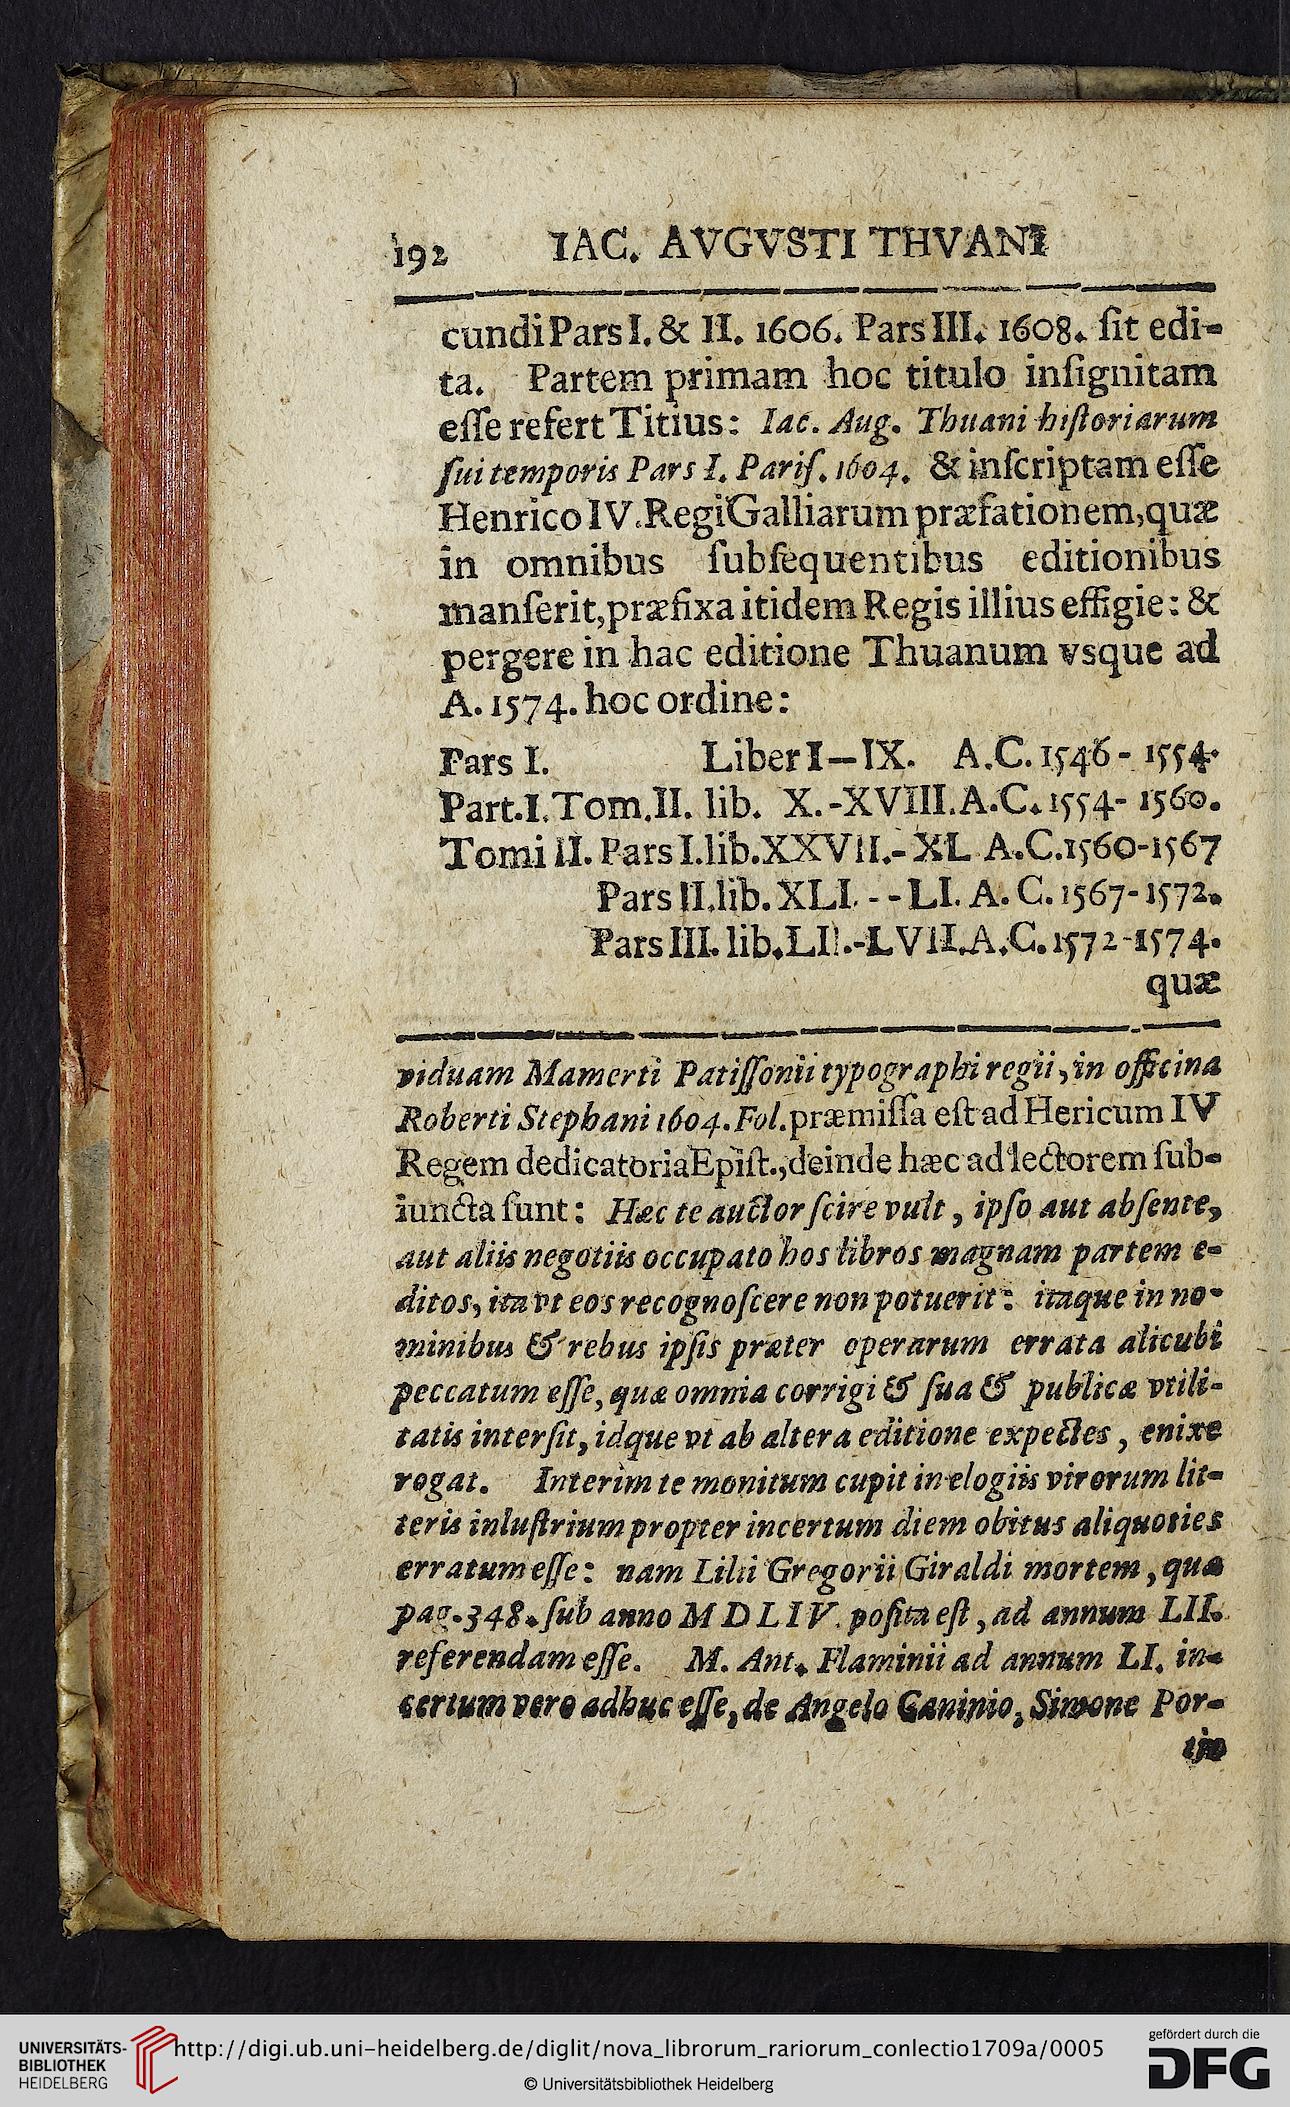 192 IAC. AVGVSTI THVANI
cundi Pars I. & II. 1606. Pars III. 1608. ſit edi-
ta. Partem primam hoc titulo inſignitam
eſſe refert Titius: Iac. Aug. Thuani hiſtoriarum
ſui temporis Pars I. Pariſ. 1604. & inſcriptam eſſe
Henrico IV. Regi Galliarum præfationem, quæ
in omnibus ſubſequentibus editionibus
manſerit, præfixa itidem Regis illius effigie: &
pergere in hac editione Thuanum vsque ad
A. 1574. hoc ordine:
Pars I. Liber I–IX. A.C. 1546 - 1554.
Part.I. Tom.II. lib. X.-XVIII. A.C. 1554- 1560.
Tomi II. Pars I. lib. XXVII.- XL A.C. 1560-1567
Pars II. lib. XLI. - - LI. A. C. 1567- 1572.
Pars III. lib. LII.-LVII. A.C. 1572-1574.
quæ
viduam Mamerti Patiſſonii typographi regii, in officina
Roberti Stephani 1604. Fol. præmiſſa eſt ad Hericum IV
Regem dedicatoria Epiſt., deinde hæc ad lectorem ſub-
iuncta ſunt: Hæc te auctor ſcire vult, ipſo aut abſente,
aut aliis negotiis occupato hos libros magnam partem e-
ditos, ita vt eos recognoſcere non potuerit: itaque in no-
minibus & rebus ipſis præter operarum errata alicubi
peccatum eſſe, quæ omnia corrigi & ſua & publicæ vtili-
tatis interſit, idque vt ab altera editione expectes, enixe
rogat. Interim te monitum cupit in elogiis virorum lit-
teris inluſtrium propter incertum diem obitus aliquoties
erratum eſſe: nam Lilii Gregorii Giraldi mortem, quæ
pag. 348. ſub anno M D L I V. poſita eſt, ad annum LII.
referendam eſſe. M. Ant. Flaminii ad annum LI. in-
certum vero adhuc eſſe, de Angelo Caninio, Simone Por-
tio
UNIVERSITÄTS-
BIBLIOTHEK
HEIDELBERG
http://digi.ub.uni-heidelberg.de/diglit/nova_librorum_rariorum_conlectio1709a/0005
© Universitätsbibliothek Heidelberg
gefördert durch die
DFG